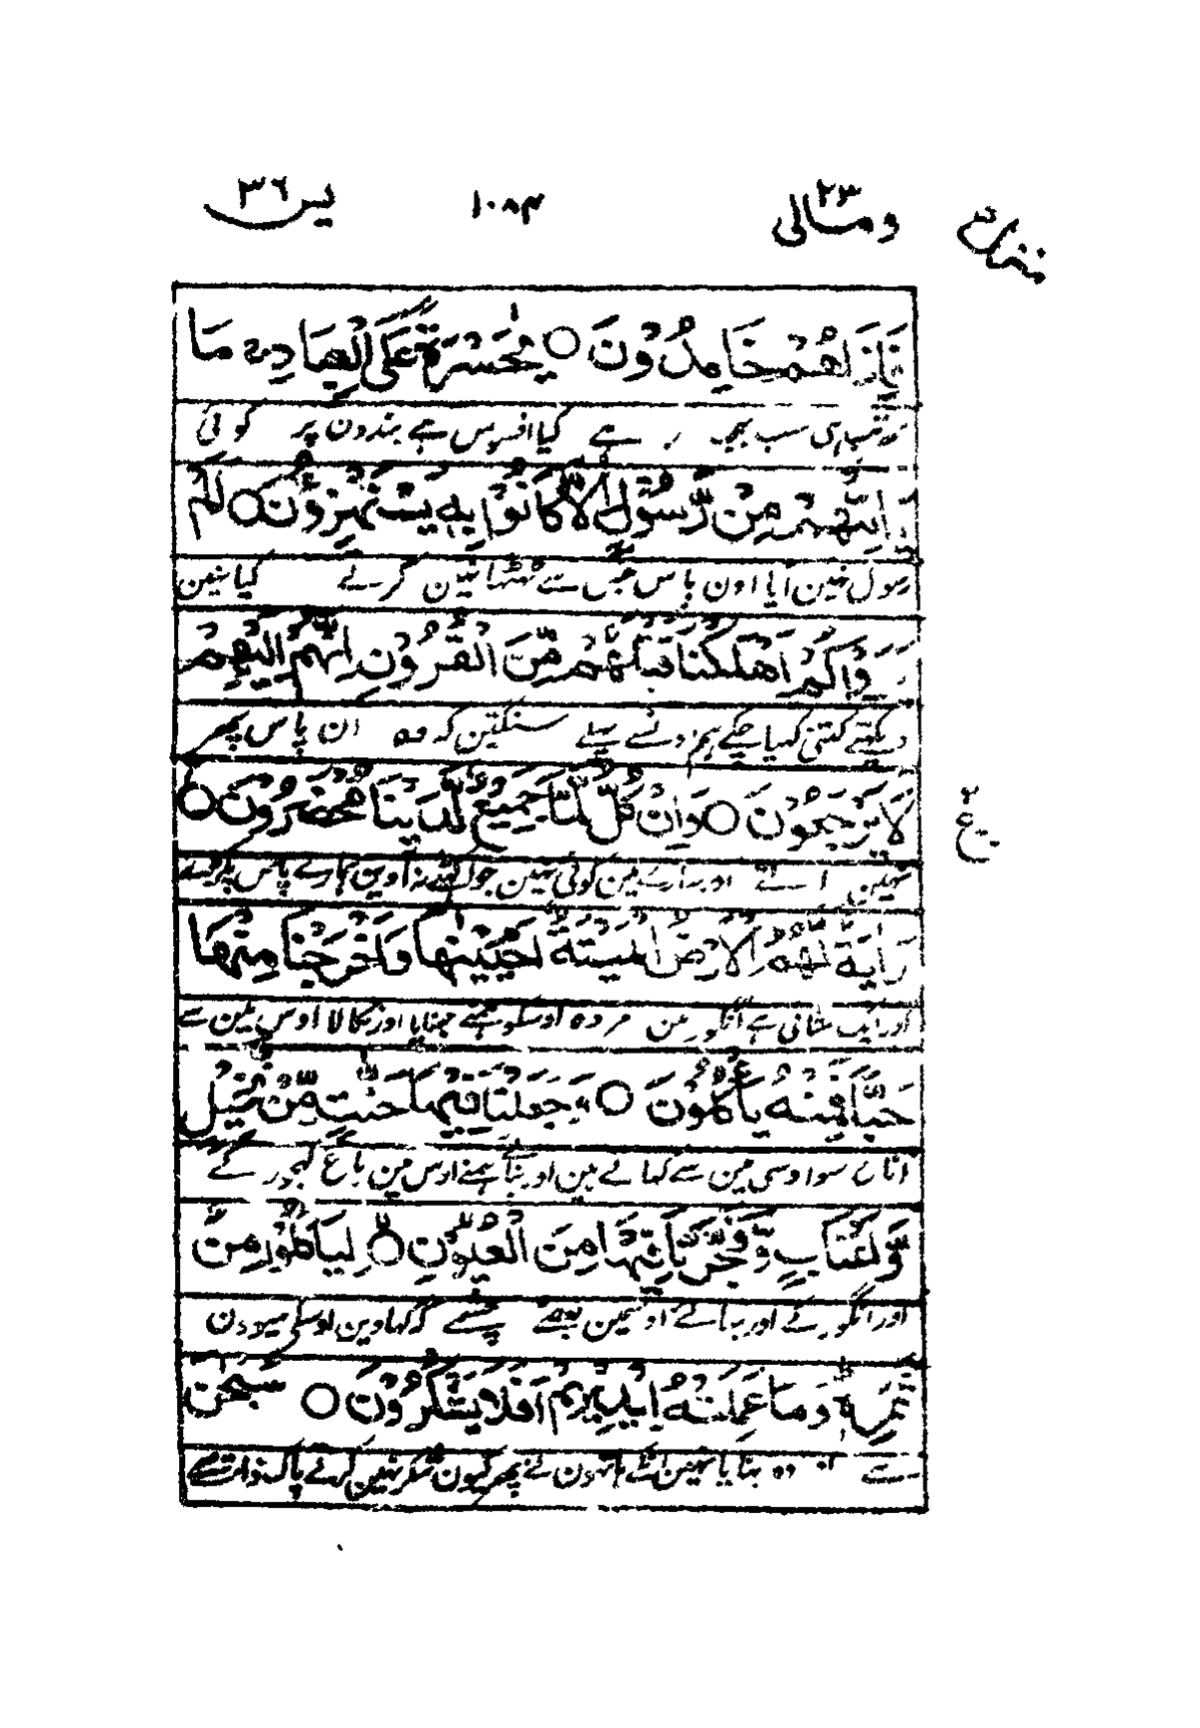 منزل ٥ ومالی ٢٣ ١٠٨٤ یس ٣٦
فَإِذَا هُمْ خَامِدُونَ ○ يٰحَسْرَةً عَلَى الْعِبَادِ مَا
سب بجھ رہے کیا افسوس ہے بندون پر کوئی
يَأْتِيهِمْ مِنْ رَّسُولٍ إِلَّا كَانُوا بِهٖ يَسْتَهْزِءُونَ ○ أَلَمْ
رسول نہین آیا اون پاس جس سے ٹھٹھا نہین کرتے کیا نہین
يَرَوْا كَمْ أَهْلَكْنَا قَبْلَهُمْ مِّنَ الْقُرُونِ أَنَّهُمْ إِلَيْهِمْ
دیکھتے کتنی کھپا چکے ہم اونسے پہلے سنگتین کہ وہ ان پاس پھر
لَا يَرْجِعُونَ ○ وَإِنْ كُلٌّ لَّمَّا جَمِيعٌ لَّدَيْنَا مُحْضَرُونَ ○
نہین آتے اور سارے مین کوئی نہین جو اکٹھے نہ آوین ہمارے پاس پکڑے
وَاٰيَةٌ لَّهُمُ الْأَرْضُ الْمَيْتَةُ أَحْيَيْنٰهَا وَأَخْرَجْنَا مِنْهَا
اور ایک نشانی ہے انکو زمین مردہ اوسکو ہمنے جلایا اور نکالا اوس مین سے
حَبًّا فَمِنْهُ يَأْكُلُونَ ○ وَجَعَلْنَا فِيهَا جَنّٰتٍ مِّنْ نَّخِيلٍ
اناج سو اوسی مین سے کھاتے ہین اور بنائے ہمنے اوس مین باغ کھجور کے
وَّأَعْنَابٍ وَّفَجَّرْنَا فِيهَا مِنَ الْعُيُونِ ○ لِيَأْكُلُوا مِنْ
اور انگور کے اور بہائے اوسمین بعضے چشمے کہ کھاوین اوسکی میوون
ثَمَرِهٖ وَمَا عَمِلَتْهُ أَيْدِيهِمْ أَفَلَا يَشْكُرُونَ ○ سُبْحٰنَ
سے اور وہ بنایا نہین انکے ہاتھون نے پھر کیون شکر نہین کرتے پاک ذات ہے
ع ٢